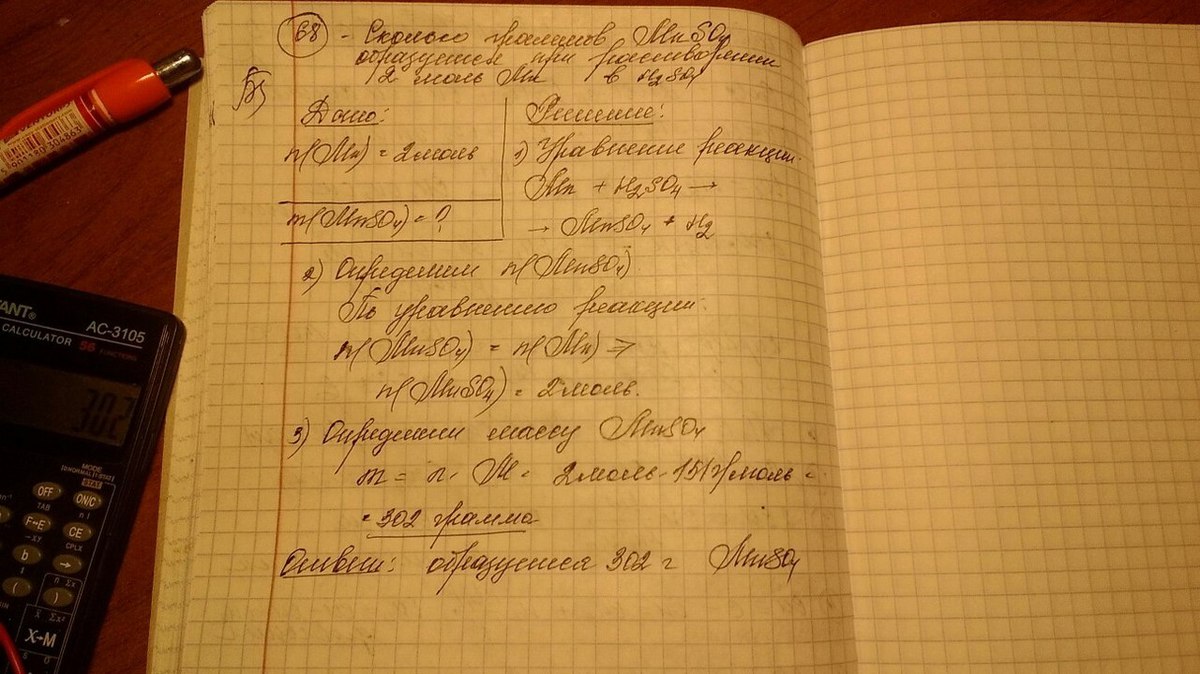 68 - Сколько граммов MnSO4
образуется при растворении
2 моль Mn в H2SO4
Дано:
n(Mn) = 2 моль
m(MnSO4) = ?
Решение:
1) Уравнение реакции.
Mn + H2SO4 →
→ MnSO4 + H2
2) Определим n(MnSO4)
По уравнению реакции:
n(MnSO4) = n(Mn) ⇒
n(MnSO4) = 2 моль.
3) Определим массу MnSO4
m = n · M = 2 моль · 151 г/моль =
= 302 грамма
Ответ: образуется 302 г MnSO4
CALCULATOR 56 FUNCTIONS
AC-3105
302
MODE
STAT
OFF
ON/C
TAB
n!
F↔E
CE
→XY
CPLX
b
→
(
)
X
Σx
Σx²
X→M